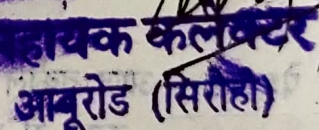 सहायक कलक्टर
आबूरोड (सिरोही)